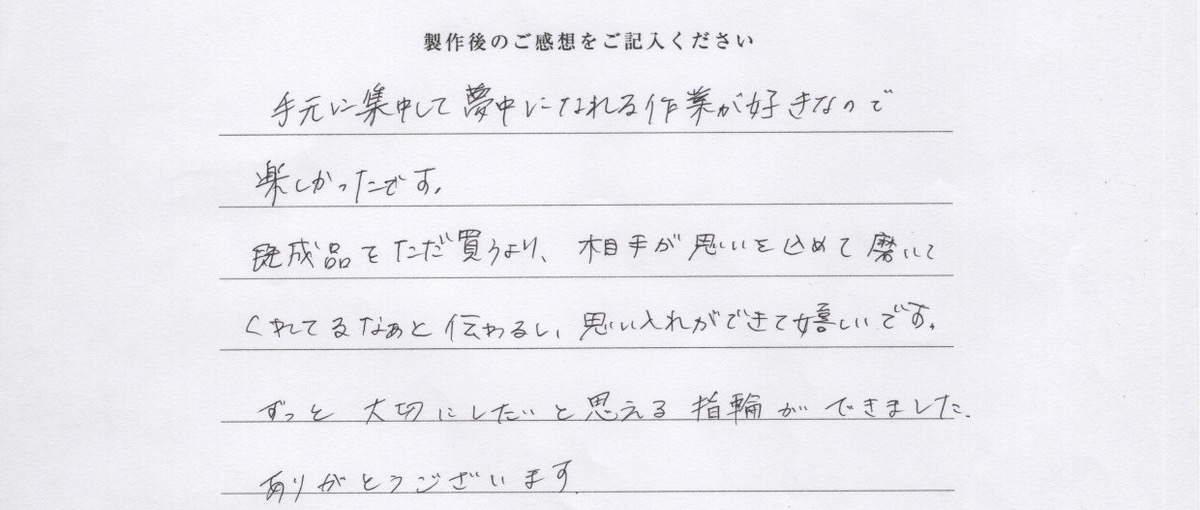 製作後のご感想をご記入ください
手元に集中して夢中になれる作業が好きなので
楽しかったです。
既成品をただ買うより、相手が思いを込めて磨いて
くれてるなぁと伝わるし、思い入れができて嬉しいです。
ずっと大切にしたいと思える指輪ができました。
ありがとうございます。